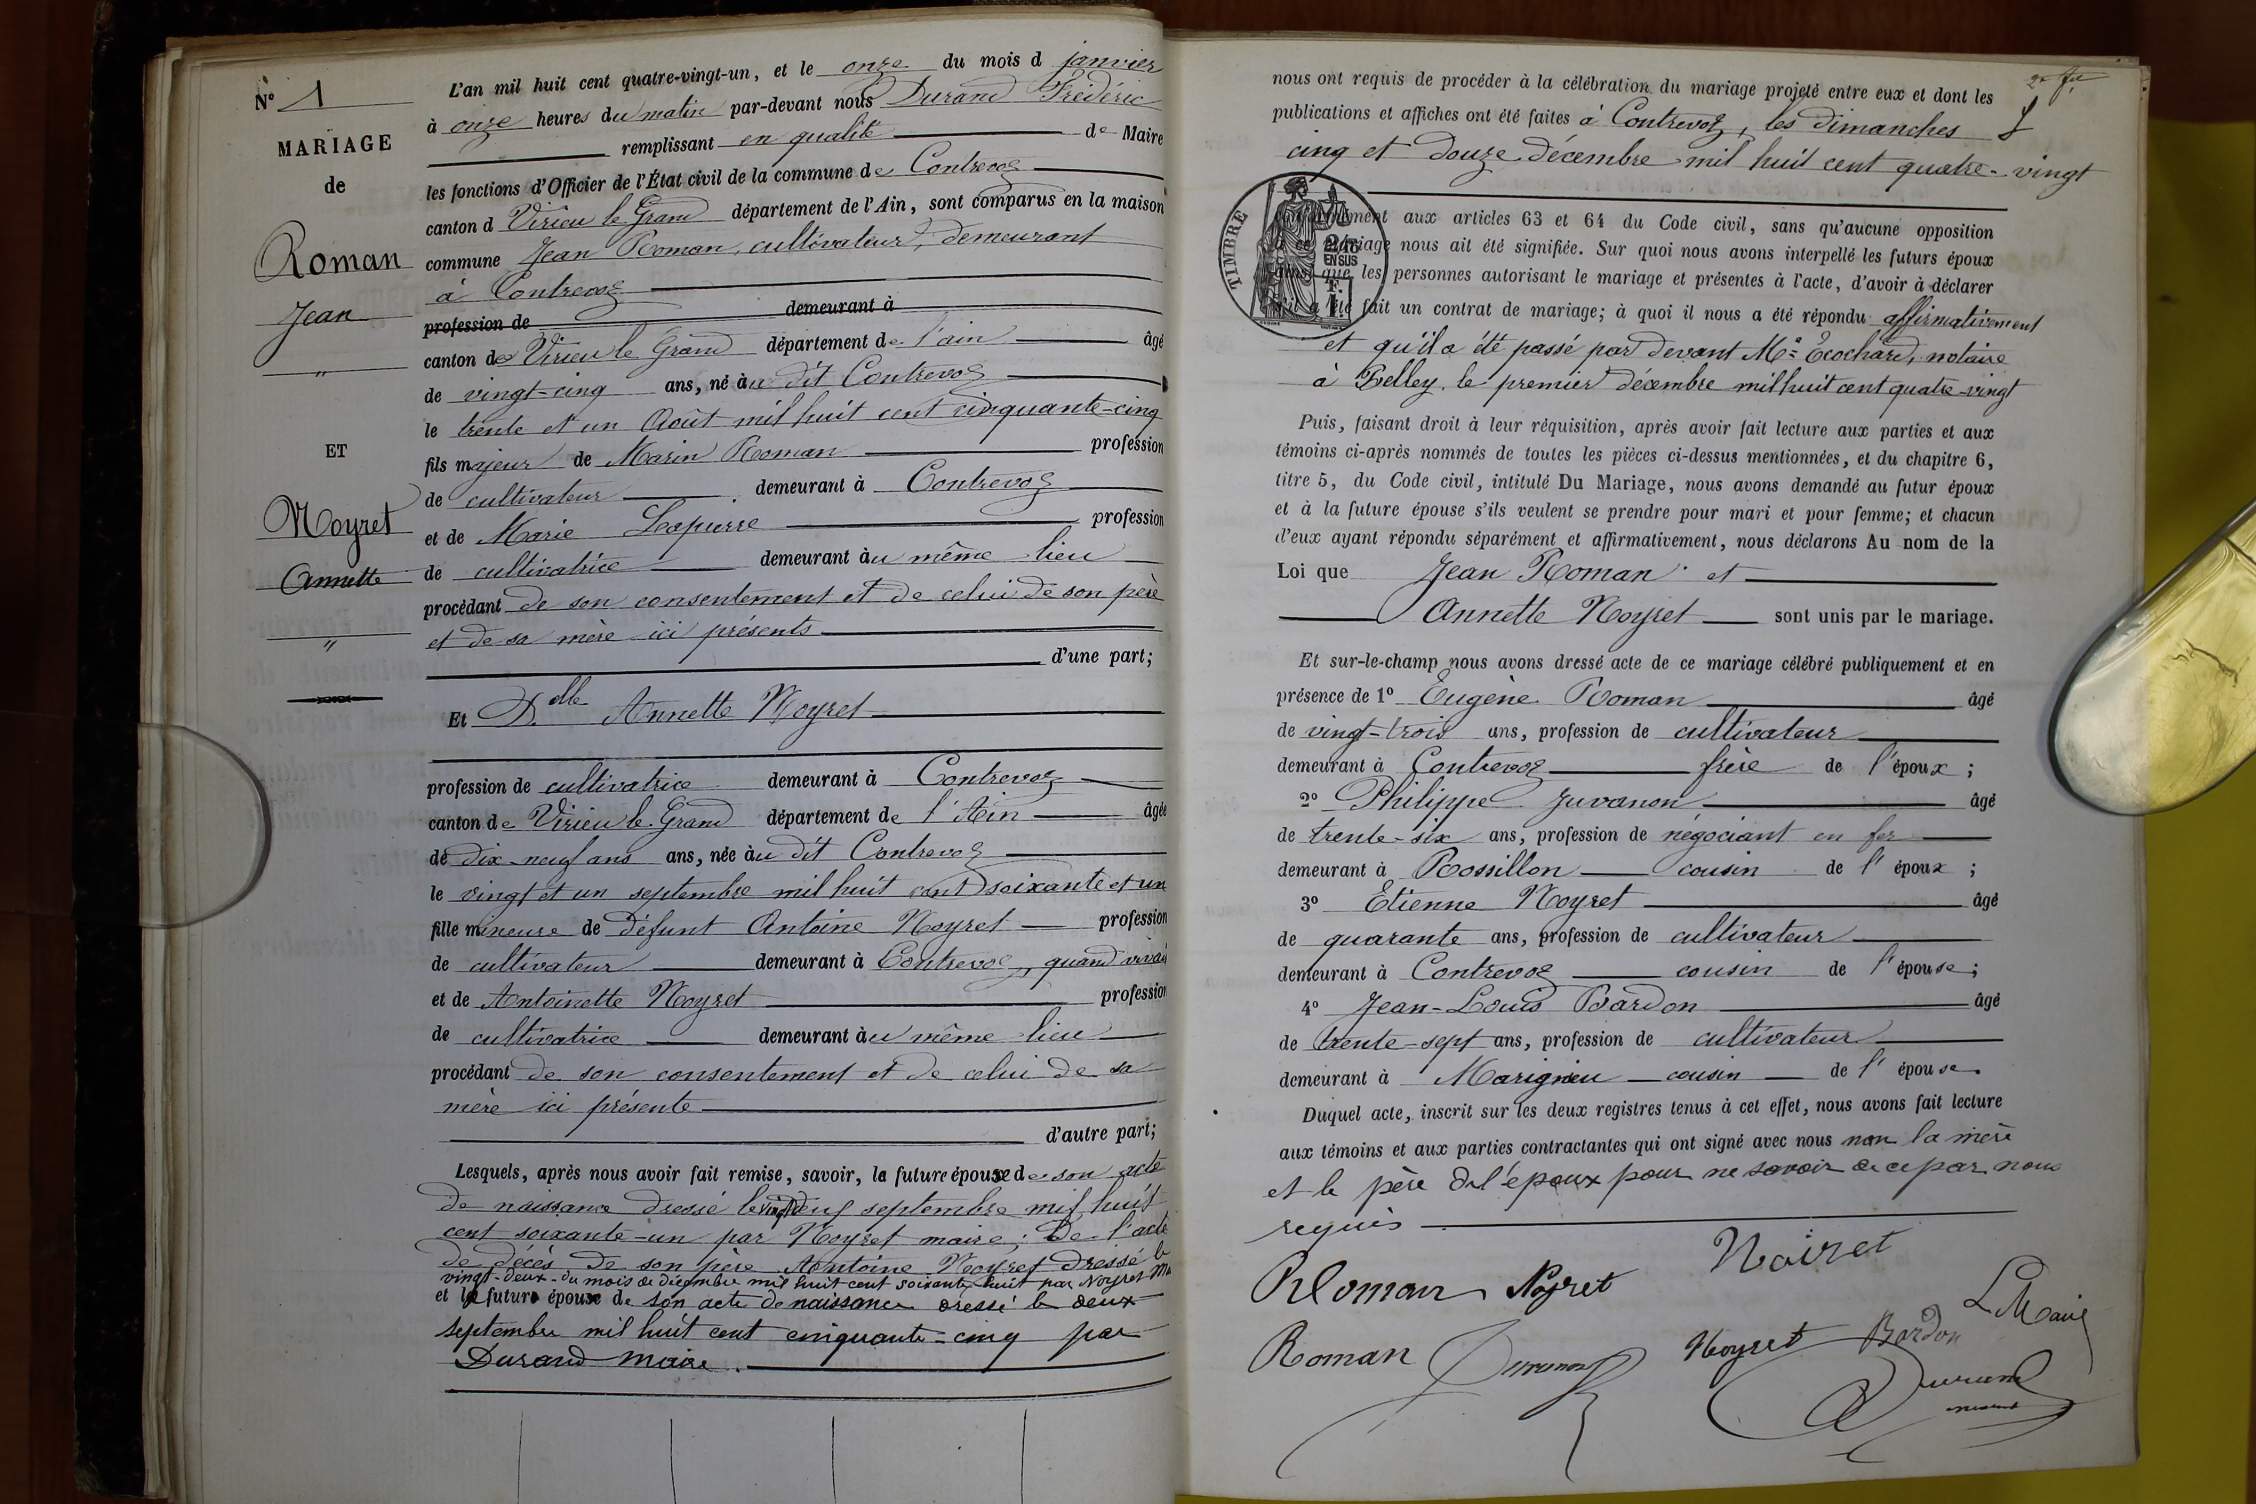 N° 1
MARIAGE
de
Roman
Jean
"
ET
Noyret
Annette
"
L'an mil huit cent quatre-vingt-un, et le onze du mois d janvier
à onze heures du matin par-devant nous Durand Frédéric
remplissant en qualité de Maire
les fonctions d'Officier de l'État civil de la commune de Contrevoz
canton d Virieu le Grand département de l'Ain, sont comparus en la maison
commune Jean Roman, cultivateur, demeurant
à Contrevoz
profession de demeurant à
canton de Virieu le Grand département de l'ain âgé
de vingt-cinq ans, né au dit Contrevoz
le trente et un Août mil huit cent cinquante-cinq
fils majeur de Marin Roman profession
de cultivateur demeurant à Contrevoz
et de Marie Lapierre profession
de cultivatrice demeurant au même lieu
procédant de son consentement et de celui de son père
et de sa mère ici présents
d'une part;
Et Delle Annette Noyret
profession de cultivatrice demeurant à Contrevoz
canton de Virieu le Grand département de l'Ain âgée
de dix-neuf ans ans, née au dit Contrevoz
le vingt et un septembre mil huit cent soixante et un
fille mineure de défunt Antoine Noyret profession
de cultivateur demeurant à Contrevoz, quand vivait
et de Antoinette Noyret profession
de cultivatrice demeurant au même lieu
procédant de son consentement et de celui de sa
mère ici présente
d'autre part;
Lesquels, après nous avoir fait remise, savoir, la future épouse de son acte
de naissance dressé le vingt deux septembre mil huit
cent soixante-un par Noyret maire; De l'acte
de décès de son père Antoine Noyret dressé le
vingt-deux du mois de décembre mil huit cent soixante huit par Noyret
et le futur époux de son acte de naissance dressé le deux
septembre mil huit cent cinquante-cinq par
Durand maire.
nous ont requis de procéder à la célébration du mariage projeté entre eux et dont les
publications et affiches ont été faites à Contrevoz, les dimanches
cinq et douze décembre mil huit cent quatre-vingt
TIMBRE
2/10
EN SUS
aux articles 63 et 64 du Code civil, sans qu'aucune opposition
à ce mariage nous ait été signifiée. Sur quoi nous avons interpellé les futurs époux
que les personnes autorisant le mariage et présentes à l'acte, d'avoir à déclarer
s'il a été fait un contrat de mariage; à quoi il nous a été répondu affirmativement
et qu'il a été passé par devant Me Ecochard, notaire
à Belley, le premier décembre mil huit cent quatre-vingt
Puis, faisant droit à leur réquisition, après avoir fait lecture aux parties et aux
témoins ci-après nommés de toutes les pièces ci-dessus mentionnées, et du chapitre 6,
titre 5, du Code civil, intitulé Du Mariage, nous avons demandé au futur époux
et à la future épouse s'ils veulent se prendre pour mari et pour femme; et chacun
d'eux ayant répondu séparément et affirmativement, nous déclarons Au nom de la
Loi que Jean Roman et
Annette Noyret sont unis par le mariage.
Et sur-le-champ nous avons dressé acte de ce mariage célébré publiquement et en
présence de 1° Eugène Roman âgé
de vingt-trois ans, profession de cultivateur
demeurant à Contrevoz frère de l'époux;
2° Philippe Juvanon âgé
de trente-six ans, profession de négociant en fer
demeurant à Rossillon cousin de l'époux;
3° Etienne Noyret âgé
de quarante ans, profession de cultivateur
demeurant à Contrevoz cousin de l'épouse;
4° Jean-Louis Bardon âgé
de trente-sept ans, profession de cultivateur
demeurant à Marignieu cousin de l'épouse
Duquel acte, inscrit sur les deux registres tenus à cet effet, nous avons fait lecture
aux témoins et aux parties contractantes qui ont signé avec nous non la mère
et le père de l'époux pour ne savoir de ce par nous
requis
Noiret
Roman Noyret
Roman Juvanon Noyret Bardon Le Maire
Durand